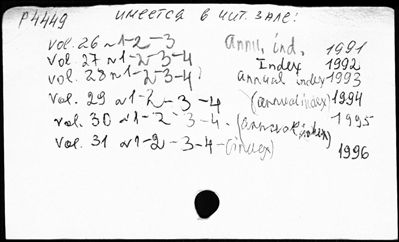 P4449 имеется в чит. зале:
Vol. 26 N1-2-3 annu. ind. 1991
Vol. 27 N1-2-3-4 Index 1992
Vol. 28 N1-2-3-4 annual index 1993
Vol. 29 N1-2-3-4 (annual index) 1994
Vol. 30 N1-2-3-4- (annual index) 1995
Vol. 31 N1-2-3-4-(index) 1996